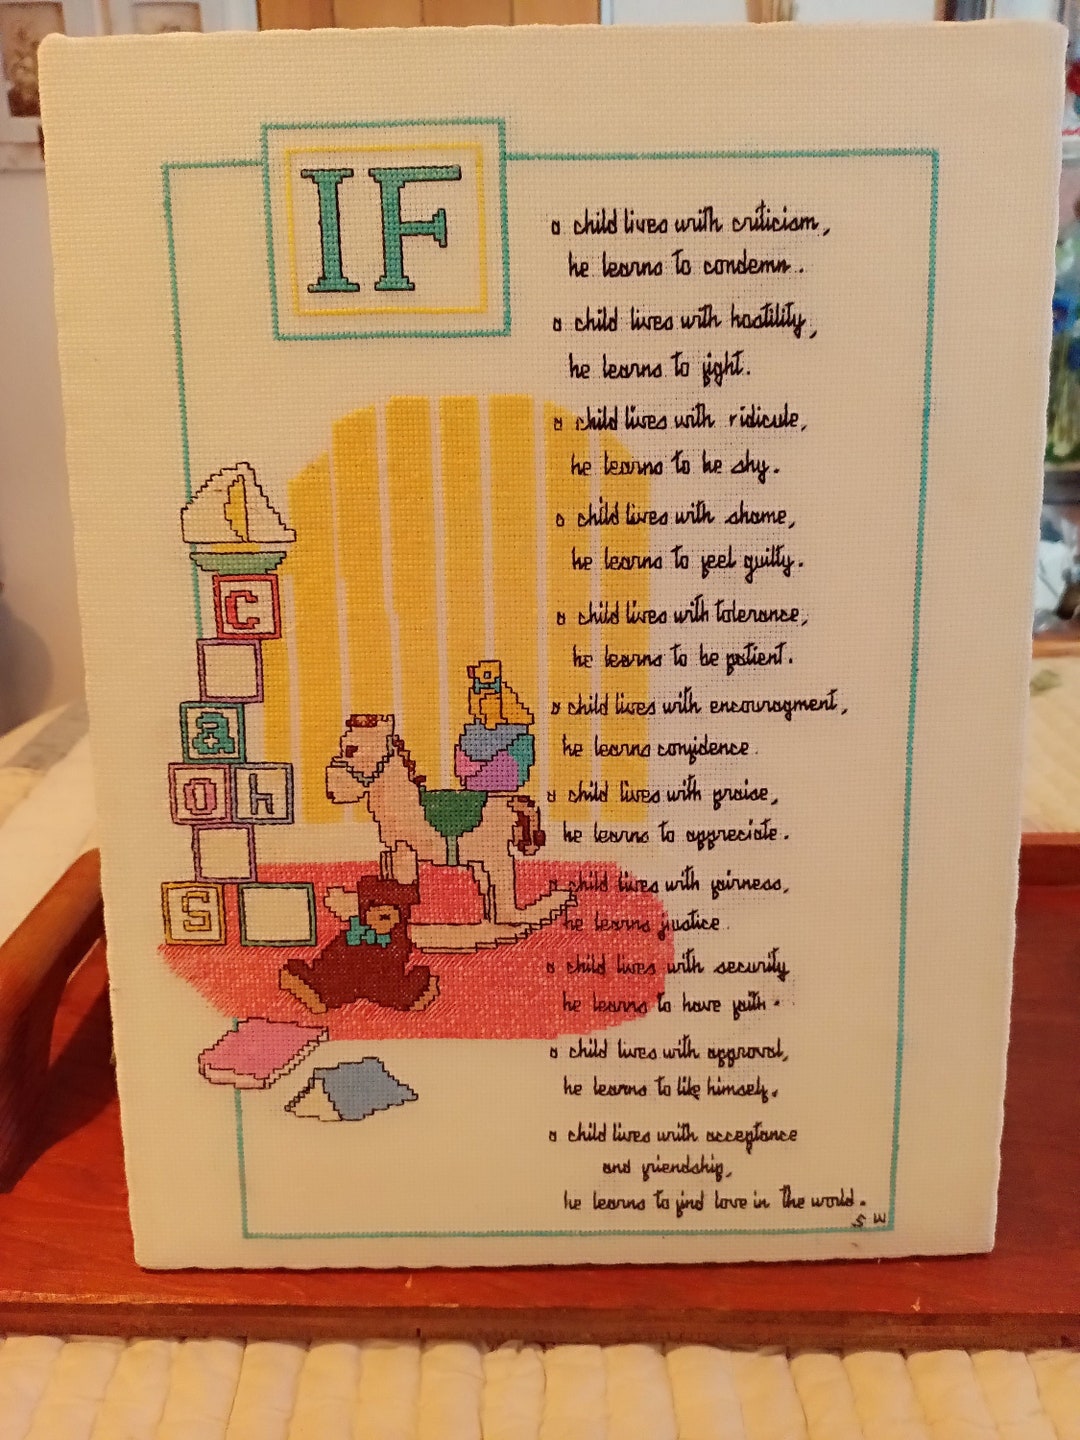 IF
a child lives with criticism,
he learns to condemn.
a child lives with hostility,
he learns to fight.
a child lives with ridicule,
he learns to be shy.
a child lives with shame,
he learns to feel guilty.
a child lives with tolerance,
he learns to be patient.
a child lives with encouragment,
he learns confidence.
a child lives with praise,
he learns to appreciate.
a child lives with fairness,
he learns justice.
a child lives with security
he learns to have faith.
a child lives with approval,
he learns to like himself.
a child lives with acceptance
and friendship,
he learns to find love in the world.
S W
C
a
o h
S